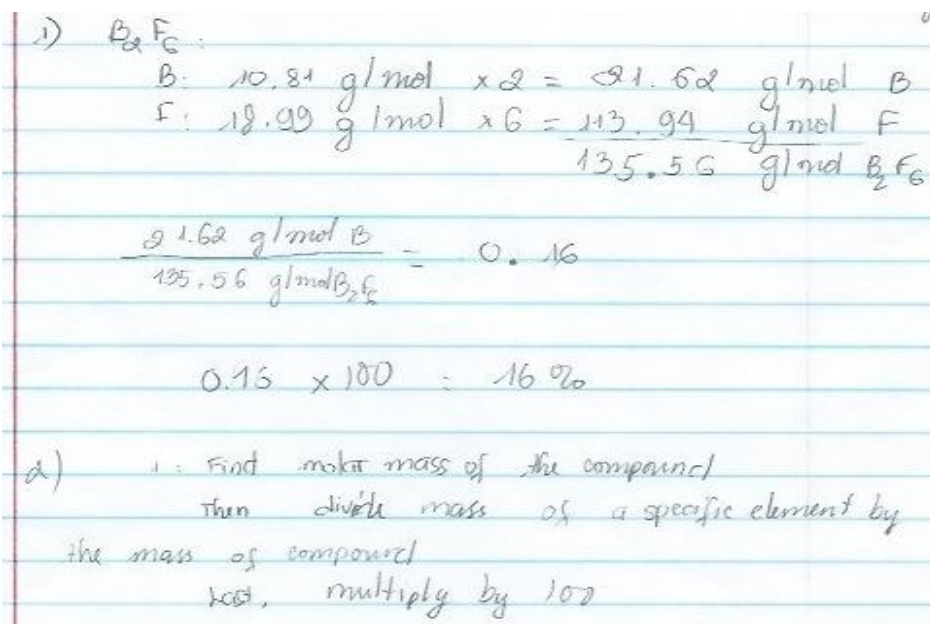 1) B₂F₆:
B: 10.81 g/mol x2 = 21.62 g/mol B
F: 18.99 g/mol x6 = 113.94 g/mol F
135.56 g/mol B₂F₆
21.62 g/mol B = 0.16
135.56 g/molB₂F₆
0.16 x 100 = 16%
2) 1: Find molar mass of the compound
Then divide mass of a specific element by
the mass of compound
Last, multiply by 100